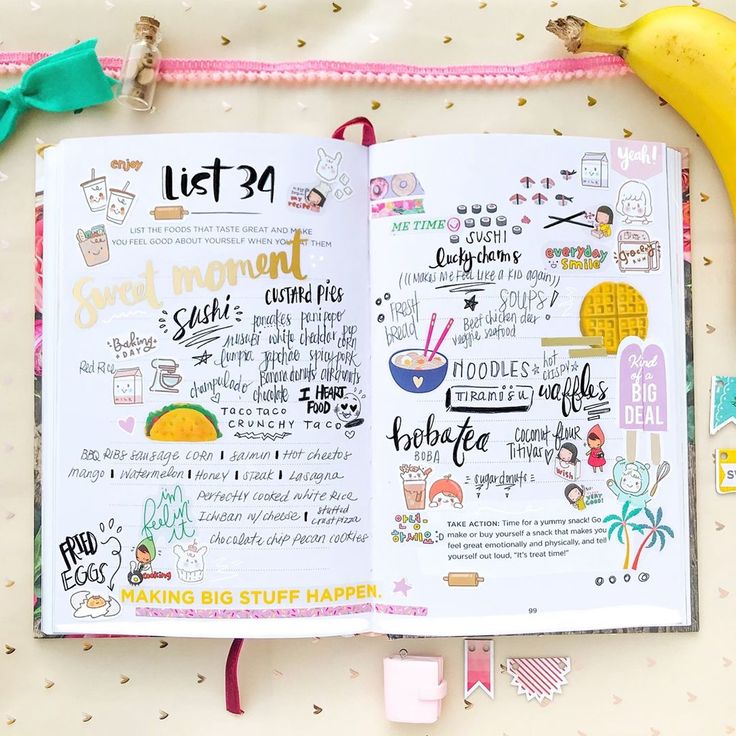 enjoy
List 34
LIST THE FOODS THAT TASTE GREAT AND MAKE
YOU FEEL GOOD ABOUT YOURSELF WHEN YOU EAT THEM
sweet moment
Sushi
CUSTARD PIES
pancakes pani popo
musubi white cheddar pop
lumpia japchae spicy pork
Banana donuts
champulado chocolate
Baking
DAY
Red Rice
I HEART
FOOD
TACO TACO
CRUNCHY TACO
BBQ RIBS SAUSAGE CORN | Saimin | Hot Cheetos
mango | Watermelon | Honey | steak | Lasagna
Perfectly cooked white Rice
Ichiban w/ cheese | stuffed
crust pizza
chocolate chip pecan cookies
i'm
feelin'
it
FRIED
EGGS
cooking
MAKING BIG STUFF HAPPEN.
Yeah!
MILK
ME TIME
SUSHI
everyday
smile
grocery
lucky charms
(((Makes me feel like a kid again)))
fresh
bread
SOUPS!
Beef chicken deer
veggie seafood
NOODLES
hot
crispy
waffles
TIRAMISU
Kind
of a
BIG
DEAL
boba tea
BOBA
Coconut flour
Titiyas
wish
sugar donuts
VERY
GOOD!
안녕
하세요
:D
TAKE ACTION: Time for a yummy snack! Go
make or buy yourself a snack that makes you
feel great emotionally and physically, and tell
yourself out loud, "It's treat time!"
99